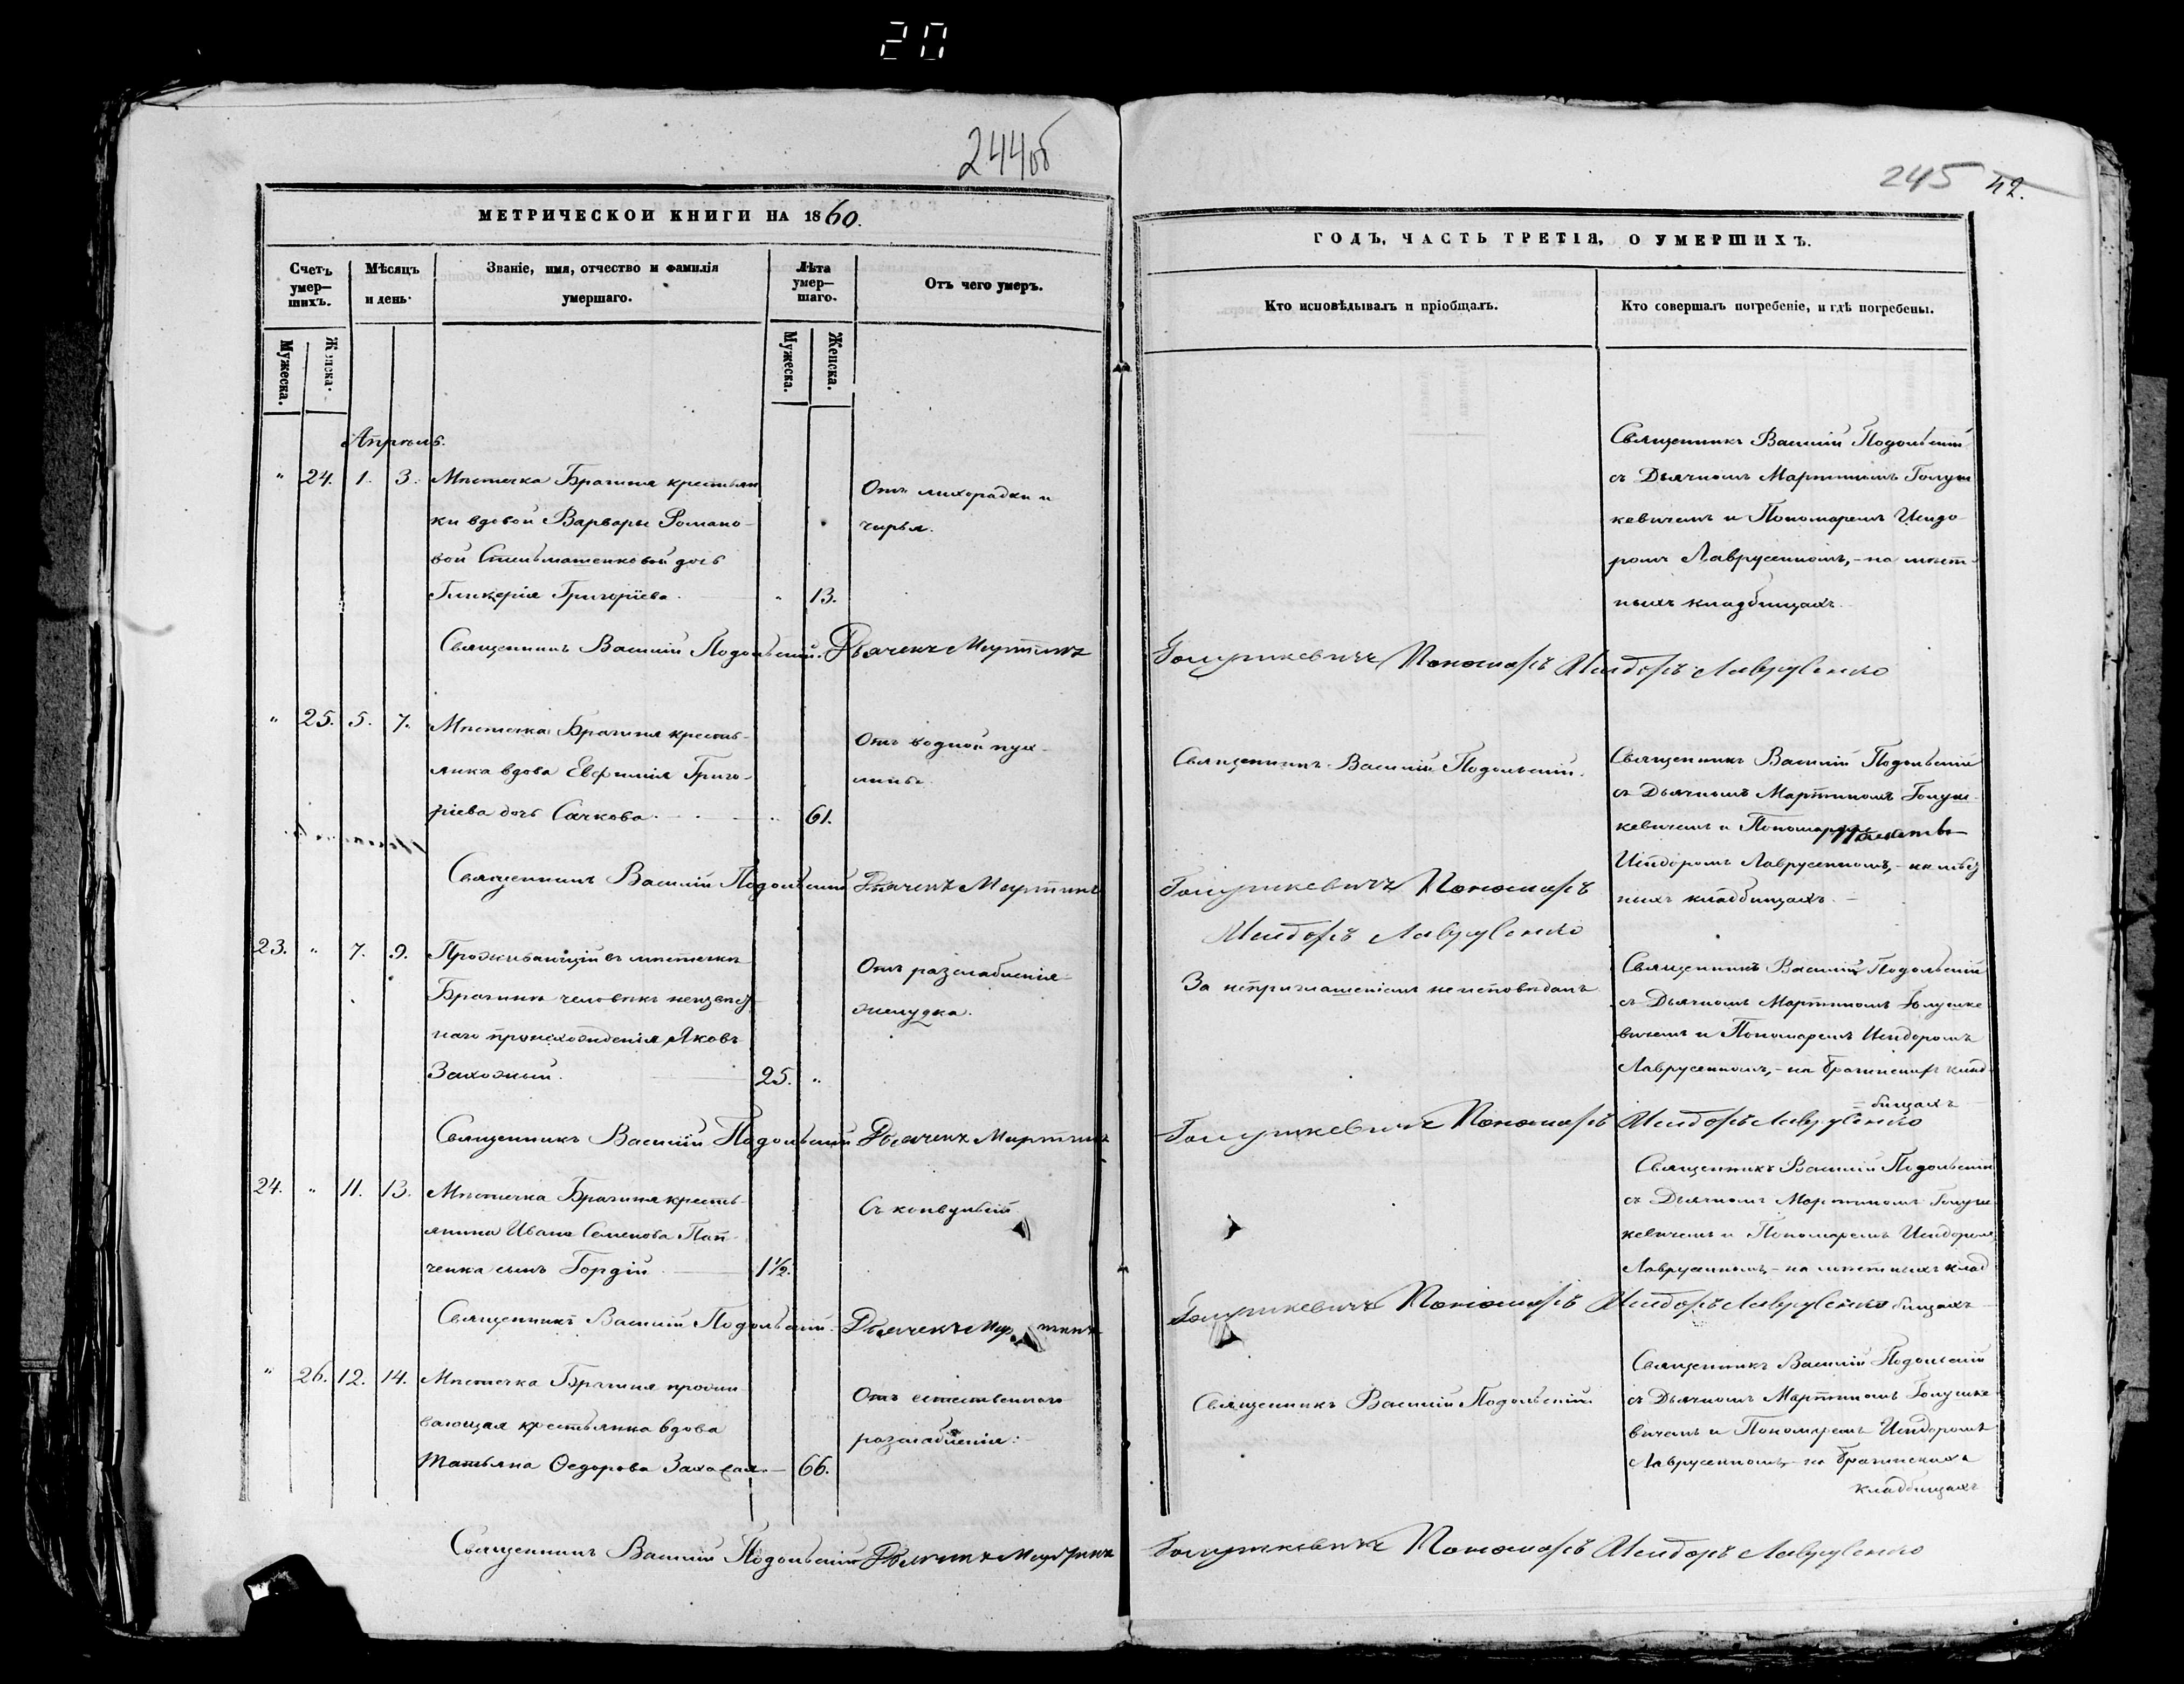 20
244об
245 42.
МЕТРИЧЕСКОЙ КНИГИ НА 1860.
ГОДЪ, ЧАСТЬ ТРЕТІЯ, О УМЕРШИХЪ.
Счетъ умер-шихъ.
Мѣсяцъ и день.
Званіе, имя, отчество и фамилія умершаго.
Лѣта умер-шаго.
Отъ чего умеръ.
Кто исповѣдывалъ и пріобщалъ.
Кто совершалъ погребеніе, и гдѣ погребены.
Мужеска.
Женска.
Мужеска.
Женска.
Апрѣль.
" 24. 1. 3. Мѣстечка Брагиня крестьян
ки вдовой Варвары Романо-
вой дочь
Гликерія Григоріева. " 13.
Отъ лихорадки и
чирья.
Священникъ Василій Подольскій
съ Дьячкомъ Мартиномъ Голуш
кевичемъ и Пономаремъ Исидо-
ромъ Лаврусенкомъ, - на мѣст-
ныхъ кладбищахъ.
Священникъ Василій Подольскій. Дьячекъ Мартинъ
Голушкевичъ Пономарь Исидоръ Лаврусенко
" 25. 5. 7. Мѣстечка Брагиня кресть-
янка вдова Евфимія Григо-
ріева дочь Сачкова. " 61.
Отъ водной пух-
лины.
Священникъ Василій Подольскій.
Священникъ Василій Подольскій
съ Дьячкомъ Мартиномъ Голуш-
кевичемъ и Пономаремъ
Исидоромъ Лаврусенкомъ, - на
ныхъ кладбищахъ.
Священникъ Василій Подольскій Дьячекъ Мартинъ
Голушкевичъ Пономарь
Исидоръ Лаврусенко
23. " 7. 9. Проживающій въ мѣстечкѣ
Брагинѣ человѣкъ неизвѣст
наго происхожденія Яковъ
Захожый. 25. "
Отъ разслабленія
желудка.
За неприглашеніемъ не исповѣданъ
Священникъ Василій Подольскій
съ Дьячкомъ Мартиномъ Голушке
вичемъ и Пономаремъ Исидоромъ
Лаврусенкомъ, - на Брагинскихъ клад
= бищахъ
Священникъ Василій Подольскій Дьячекъ Мартинъ
Голушкевичъ Пономарь Исидоръ Лаврусенко
24. " 11. 13. Мѣстечка Брагиня кресть-
янина Ивана Семенова Пан-
ченка сынъ Гордій 1½.
Съ конвульсій
Священникъ Василій Подольскій
съ Дьячкомъ Мартиномъ Голуш
кевичемъ и Пономаремъ Исидоромъ
Лаврусенкомъ, - на мѣстныхъ клад
бищахъ
Священникъ Василій Подольскій. Дьячекъ Мартинъ
Голушкевичъ Пономарь Исидоръ Лаврусенко
" 26. 12. 14. Мѣстечка Брагиня прожи
вающая крестьянка вдова
Татьяна Ѳедорова 66.
Отъ естественнаго
разслабленія.
Священникъ Василій Подольскій.
Священникъ Василій Подольскій
съ Дьячкомъ Мартиномъ Голушке-
вичемъ и Пономаремъ Исидоромъ
Лаврусенкомъ, - на Брагинскихъ
кладбищахъ
Священникъ Василій Подольскій Дьячекъ Мартинъ
Голушкевичъ Пономарь Исидоръ Лаврусенко